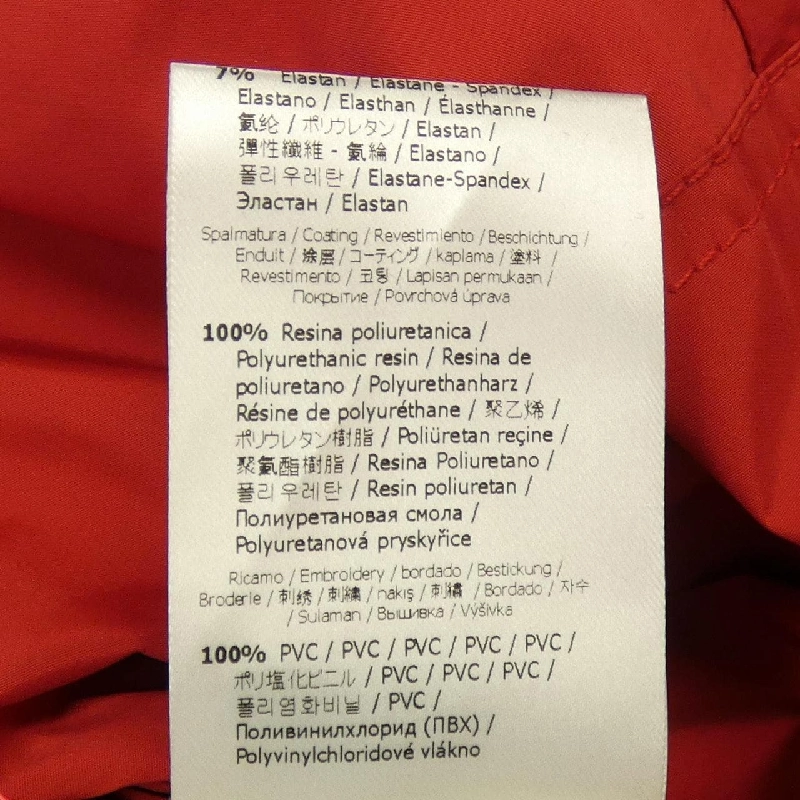 7% Elastan / Elastane - Spandex /
Elastano / Elasthan / Élasthanne /
氨纶 / ポリウレタン / Elastan /
彈性纖維 - 氨綸 / Elastano /
폴리우레탄 / Elastane-Spandex /
Эластан / Elastan
Spalmatura / Coating / Revestimiento / Beschichtung /
Enduit / 涂层 / コーティング / kaplama / 塗料 /
Revestimento / 코팅 / Lapisan permukaan /
Покрытие / Povrchová úprava
100% Resina poliuretanica /
Polyurethanic resin / Resina de
poliuretano / Polyurethanharz /
Résine de polyuréthane / 聚乙烯 /
ポリウレタン樹脂 / Poliüretan reçine /
聚氨酯樹脂 / Resina Poliuretano /
폴리우레탄 / Resin poliuretan /
Полиуретановая смола /
Polyuretanová pryskyřice
Ricamo / Embroidery / bordado / Bestickung /
Broderie / 刺绣 / 刺繍 / nakış / 刺繡 / Bordado / 자수
/ Sulaman / Вышивка / Výšivka
100% PVC / PVC / PVC / PVC / PVC /
ポリ塩化ビニル / PVC / PVC / PVC /
폴리염화비닐 / PVC /
Поливинилхлорид (ПВХ) /
Polyvinylchloridové vlákno